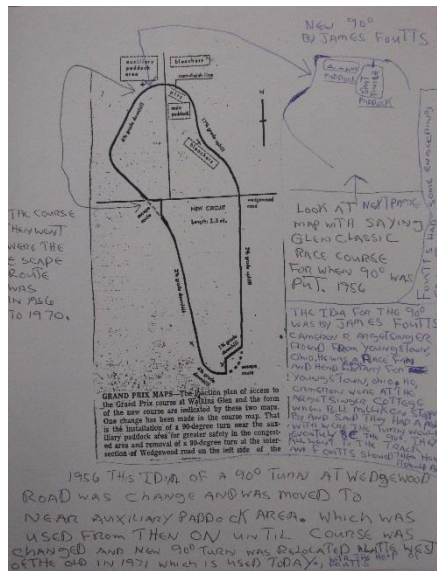 NEW 90°
BY JAMES FOUTTS
auxiliary
paddock
area
bleachers
start-finish line
pits
main
paddock
bleachers
6% grade downhill
17% grade uphill
PADDOCK
PADDOCK
NEW CIRCUIT
Length: 2.3 mi.
wedgewood
road
escape
route
2% grade downhill
2% grade uphill
escape
route
THE COURSE
THEN WENT
WERE THE
ESCAPE
ROUTE
WAS
IN 1956
TO 1970.
LOOK AT NEXT PAGE
MAP WITH SAYING
GLEN CLASSIC
RACE COURSE
FOR WHEN 90° WAS
PUT. 1956
THE IDIA FOR THE 90°
WAS BY JAMES FOUTTS
CAMERON R ARGETSINGER
FRIEND FROM YOUNGSTOWN,
OHIO. HE WAS A RACE FAN
AND HEAD LIBRARY FOR
YOUNGSTOWN, OHIO. HE,
CAMERON WERE AT THE
ARGETSINGER COTTAGE
WHEN BILL MILLIKEN STOPPED
BY AND SAID THEY HAD A
WITH WERE THE TURN WOULD
THE 90°. THEY
THE TRACK
AND FOUTTS SHOWED THEM
GRAND PRIX MAPS—The traction plan of access to
the Grand Prix course at Watkins Glen and the form
of the new course are indicated by these two maps.
One change has been made in the course map. That
is the installation of a 90-degree turn near the aux-
iliary paddock area for greater safety in the congest-
ed area and removal of a 90-degree turn at the inter-
section of Wedgewood road on the left side of the
1956 THIS IDIA OF A 90° TURN AT WEDGEWOOD
ROAD WAS CHANGE AND WAS MOVED TO
NEAR AUXILIARY PADDOCK AREA. WHICH WAS
USED FROM THEN ON UNTIL COURSE WAS
CHANGED AND NEW 90° TURN WAS RELOCATED WEST
OF THE OLD IN 1971 WHICH IS USED TODAY.